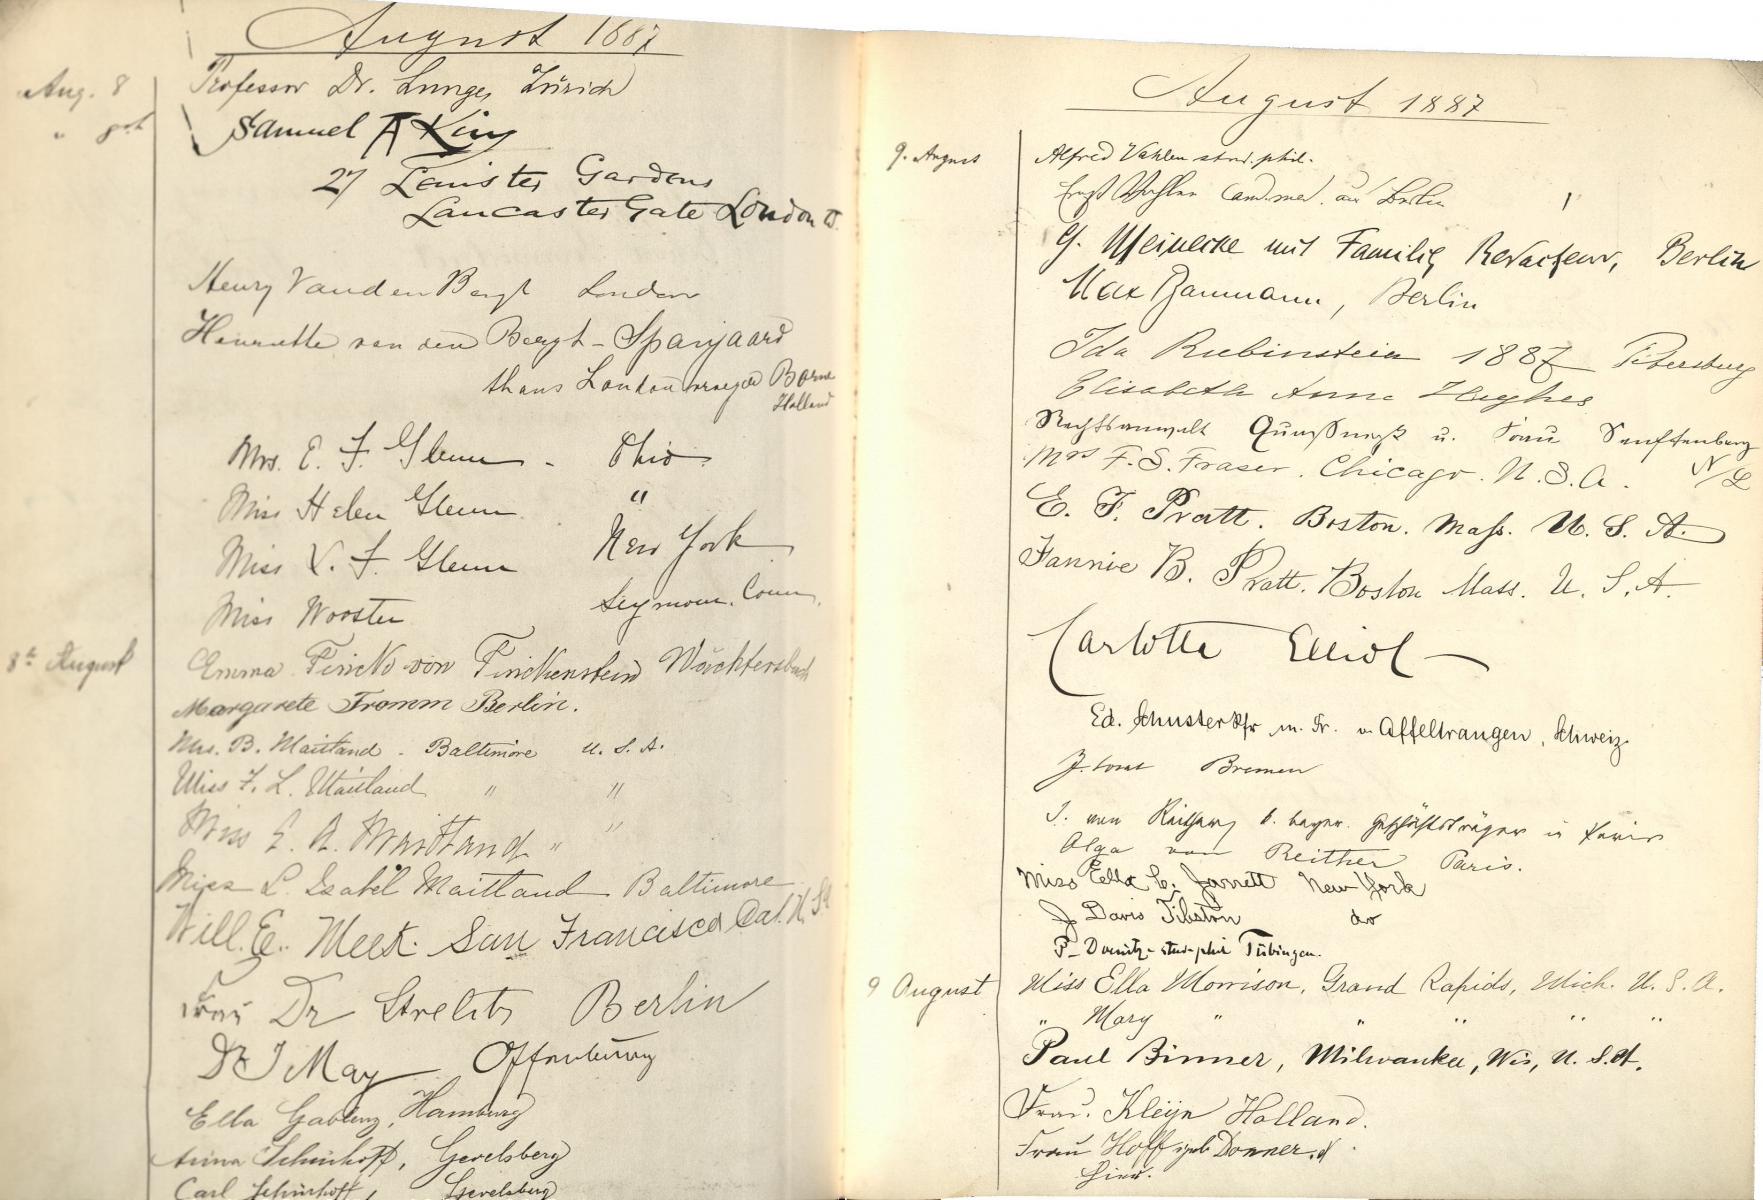 August 1887
Aug. 8 Professor Dr. Lunge, Zürich
" 8th Samuel A King
27 Leinster Gardens
Lancaster Gate London W.
Henry Vanden Bergh London
Henriette van den Bergh - Spanjaard
thans London vroeger Borne
Holland
Mrs. E. F. Glenn - Ohio
Miss Helen Glenn "
Miss V. F. Glenn New York
Miss Wooster Seymour, Conn.
8th August Emma Finck von Finckenstein Wächtersbach
Margarete Fromm Berlin.
Mrs. B. Maitland - Baltimore U. S. A.
Miss F. L. Maitland " "
Miss E. A. Maitland " "
Miss L. Isabel Maitland Baltimore
Will. E. Meek. San Francisco Cal. U.S.A
Frau Dr Strelitz Berlin
Dr J May Offenburg
Ella Gablenz, Hamburg
Anna Schürhoff, Gevelsberg
Carl Schürhoff, Gevelsberg
August 1887
9. August Alfred Vahlen stud. phil.
Ernst Vahlen cand. med. aus Berlin
G. Meinecke mit Familie, Redacteur, Berlin
Max Baumann, Berlin
Ida Rubinstein 1887 Petersburg
Elisabeth Anne Hughes
Rechtsanwalt u. Frau Senftenberg
N/L
Mrs F. S. Fraser. Chicago. U. S. A.
E. F. Pratt. Boston. Mass. U. S. A.
Fannie B. Pratt. Boston Mass. U. S. A.
Carlotta Elliot
Ed. Schuster Pfr m. Fr. v. Affeltrangen, Schweiz.
Bremen
v. Reither, k. bayer. Geschäftsträger in Paris
Olga von Reither Paris.
Miss Ella C. Jarrett New York
J Davis Tilston do
P. Domitz - stud. phil Tübingen.
9 August Miss Ella Morrison, Grand Rapids, Mich. U. S. A.
" Mary " " " " "
Paul Binner, Milwaukee, Wis, U. S. A.
Frau. Kleijn Holland.
Frau Hoff geb Donner.